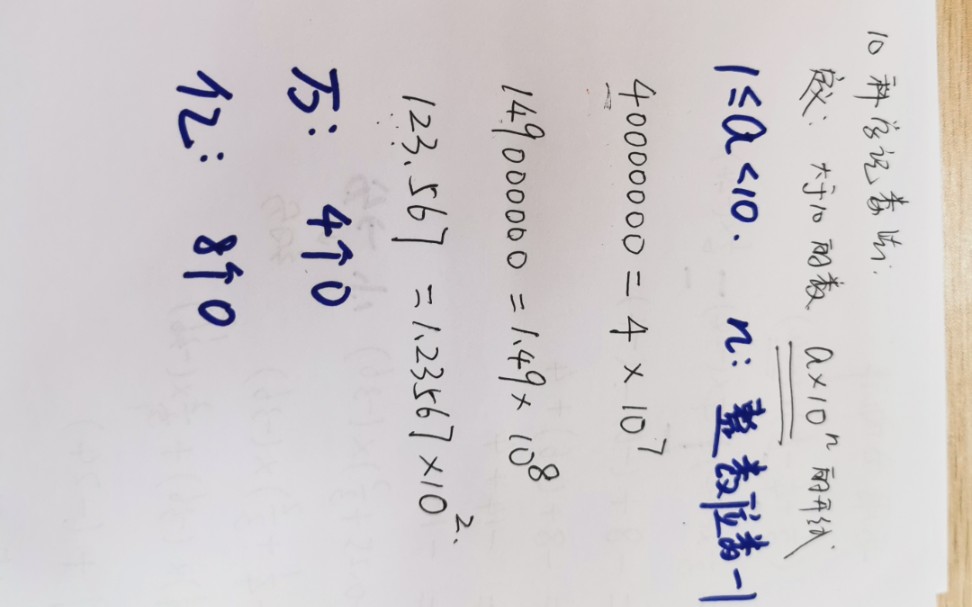 10 科学记数法:
定义: 大于10的数 a×10ⁿ的形式
1≤a<10. n: 整数位数-1
40000000=4×10⁷
149000000=1.49×10⁸
123.567=1.23567×10².
万: 4个0
亿: 8个0